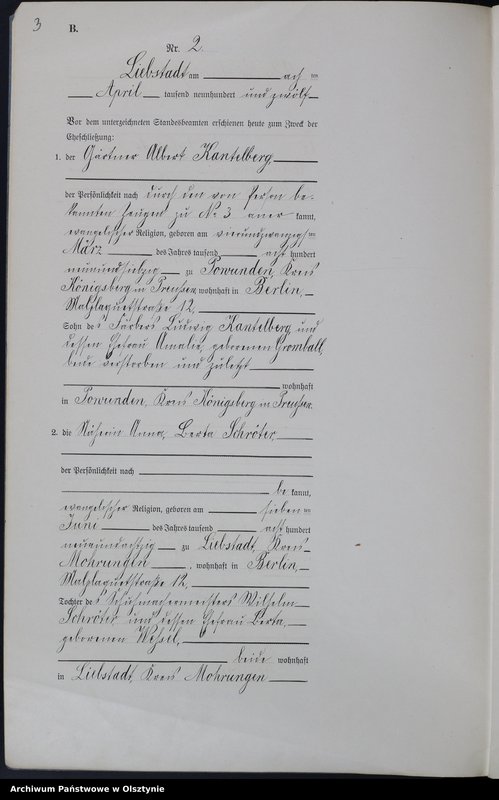 3
B.
Nr. 2.
Liebstadt am ach ten
April tausend neunhundert und zwölf
Vor dem unterzeichneten Standesbeamten erschienen heute zum Zweck der
Eheschließung:
1. der Gärtner Albert Kantelberg,
der Persönlichkeit nach durch den von Person be-
kannten Zeugen zu No 3 aner kannt,
evangelischer Religion, geboren am vierundzwanzigsten
März des Jahres tausend acht hundert
neunundsiebzig zu Powunden, Kreis
Königsberg in Preußen, wohnhaft in Berlin,
Malplaquetstraße 12,
Sohn des Färbers Ludwig Kantelberg und
dessen Ehefrau Amalie, geborenen Gromball,
beide verstorben und zuletzt
wohnhaft
in Powunden, Kreis Königsberg in Preußen.
2. die Näherin Anna, Berta Schröter,
der Persönlichkeit nach
be kannt,
evangelischer Religion, geboren am sieben ten
Juni des Jahres tausend acht hundert
neunundachtzig zu Liebstadt, Kreis
Mohrungen, wohnhaft in Berlin,
Malplaquetstraße 12,
Tochter des Schuhmachermeisters Wilhelm
Schröter und dessen Ehefrau Berta,
geborenen Wessel,
beide wohnhaft
in Liebstadt, Kreis Mohrungen
Archiwum Państwowe w Olsztynie